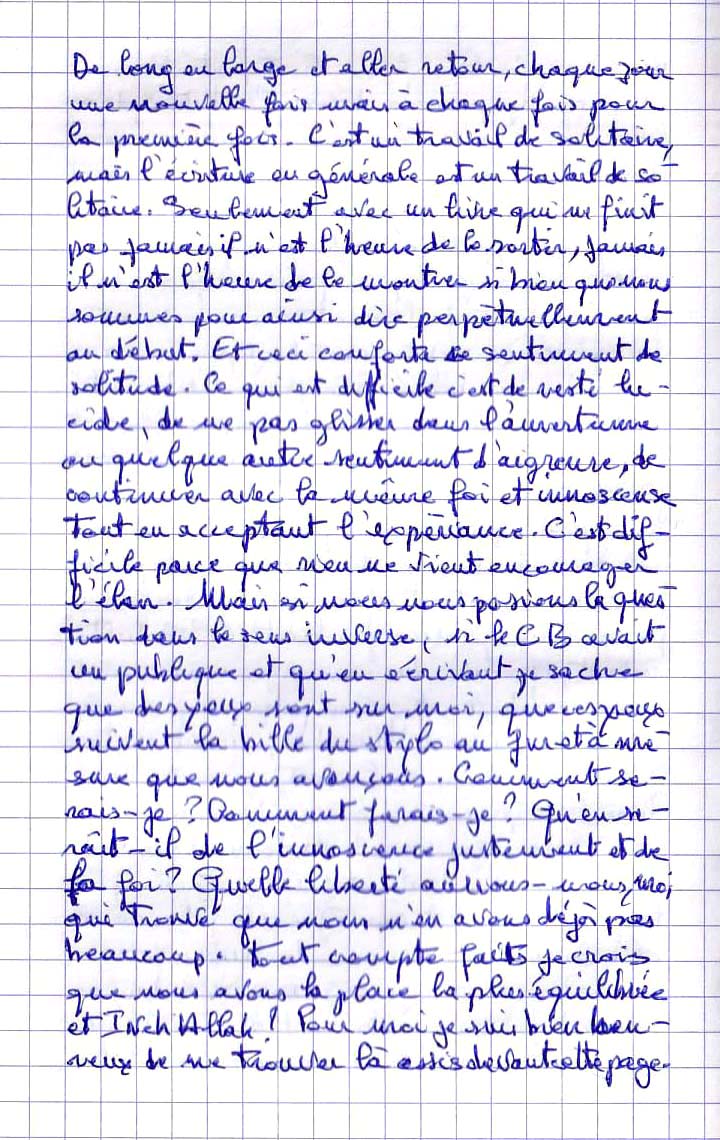 De long en large et aller retour, chaque jour
une nouvelle fois mais à chaque fois pour
la première fois. C'est un travail de solitaire,
mais l'écriture en générale est un travail de so-
litaire. Seulement avec un livre qui ne finit
pas jamais il n'est l'heure de le sortir, jamais
il n'est l'heure de le montrer si bien que nous
sommes pour ainsi dire perpétuellement
au début. Et ceci conforte le sentiment de
solitude. Ce qui est difficile c'est de resté lu-
cide, de ne pas glisser dans l'
ou quelque autre sentiment d'aigreure, de
continuer avec la même foi et innoscense
tout en acceptant l'expériance. C'est dif-
ficile parce que rien ne vient encourager
l'élan. Mais si nous nous posions la ques-
tion dans le sens inverse, si le CB avait
un publique et qu'en écrivant je sache
que des yeux sont sur moi, que ces yeux
suivent la bille du stylo au fur et à me-
sure que nous avançons. Comment se-
rais-je ? Comment ferais-je ? Qu'en se-
rait-il de l'innoscence justement et de
la foi ? Quelle liberté aurions-nous, moi
qui trouve que nous n'en avons déjà pas
beaucoup. Tout compte faits je crois
que nous avons la place la plus équilibrée
et Inch Allah ! Pour moi je suis bien heu-
reux de me trouver là assis devant cette page.